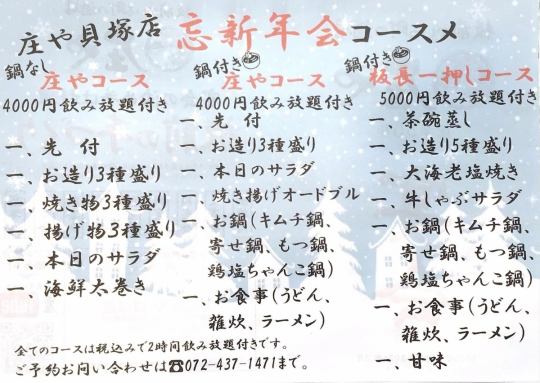 庄や貝塚店 忘新年会コースメ
鍋なし
庄やコース
4000円飲み放題付き
一、先 付
一、お造り3種盛り
一、焼き物3種盛り
一、揚げ物3種盛り
一、本日のサラダ
一、海鮮太巻き
鍋付き
庄やコース
4000円飲み放題付き
一、先 付
一、お造り3種盛り
一、本日のサラダ
一、焼き揚げオードブル
一、お鍋(キムチ鍋、
寄せ鍋、もつ鍋、
鶏塩ちゃんこ鍋)
一、お食事(うどん、
雑炊、ラーメン)
鍋付き
板長一押しコース
5000円飲み放題付き
一、茶碗蒸し
一、お造り5種盛り
一、大海老塩焼き
一、牛しゃぶサラダ
一、お鍋(キムチ鍋、
寄せ鍋、もつ鍋、
鶏塩ちゃんこ鍋)
一、お食事(うどん、
雑炊、ラーメン)
一、甘味
全てのコースは税込みで2時間飲み放題付きです。
ご予約お問い合わせは☎072-437-1471まで。